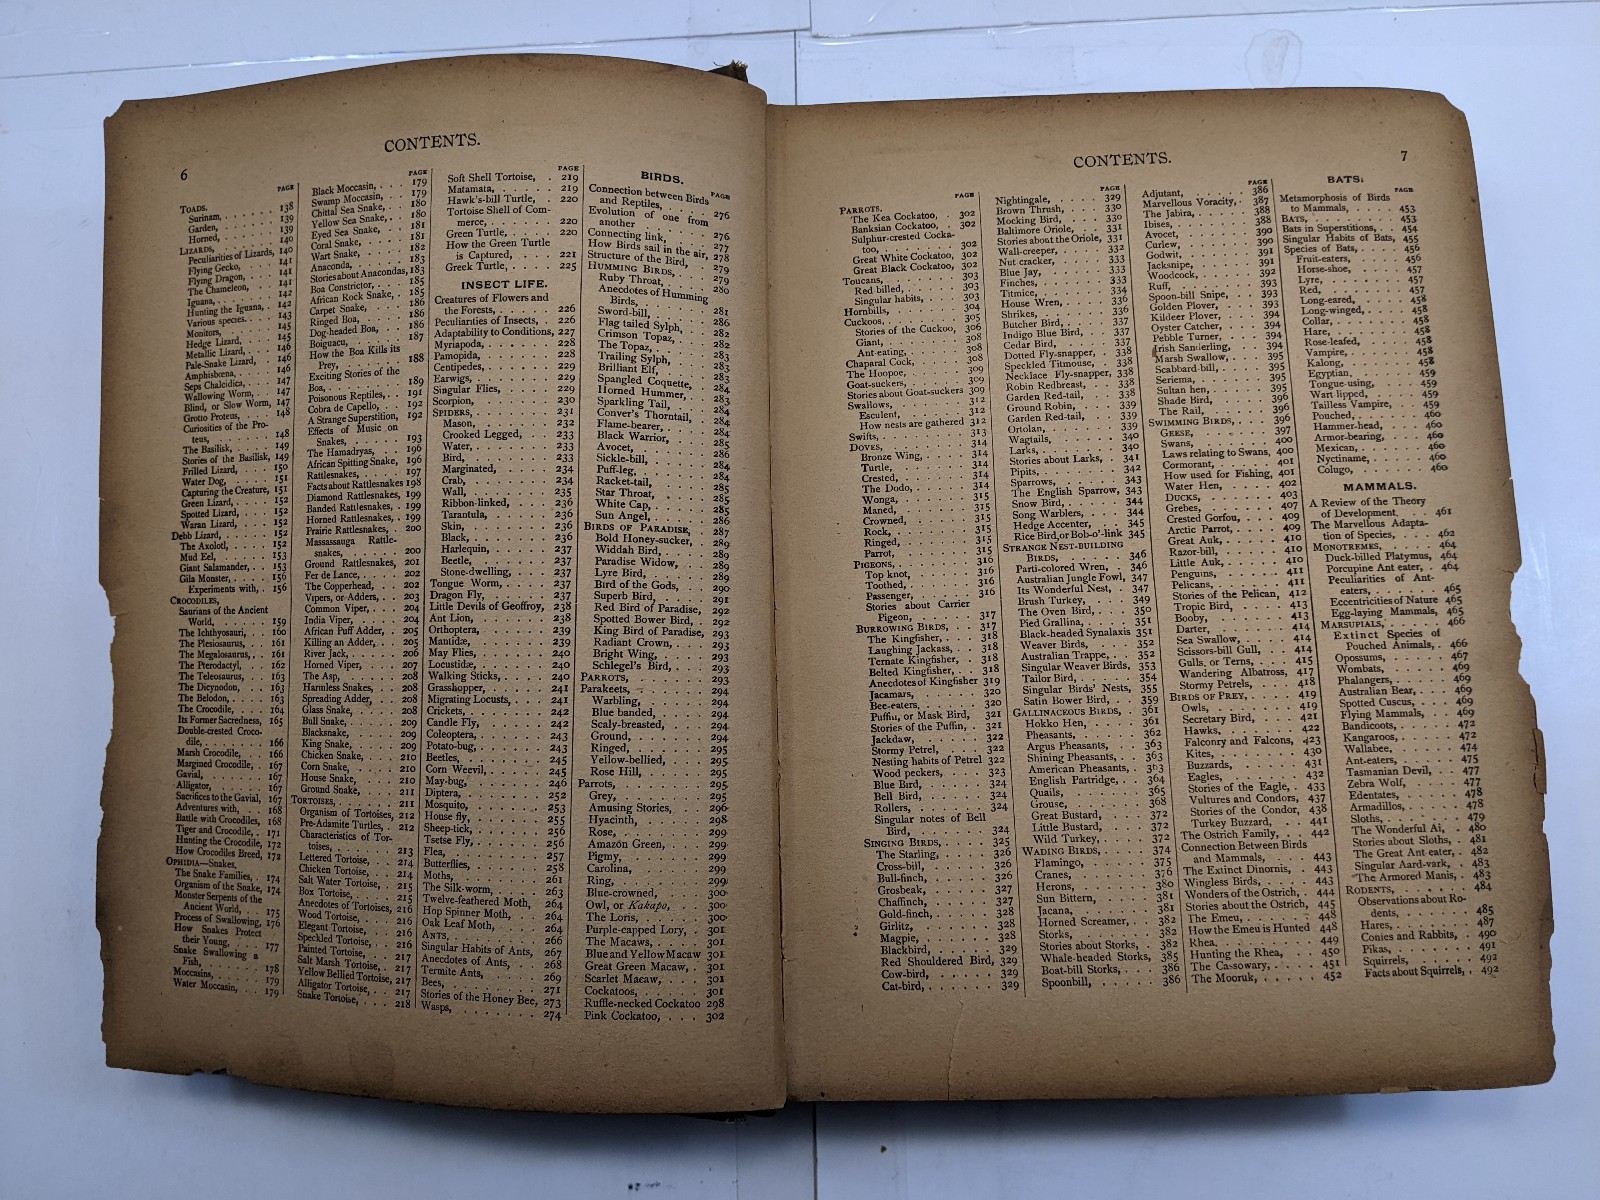 6
CONTENTS.
PAGE
TOADS.
Surinam, 138
Garden, 139
Horned, 139
LIZARDS, 140
Peculiarities of Lizards, 140
Flying Gecko, 141
Flying Dragon, 141
The Chameleon, 141
Iguana, 142
Hunting the Iguana, 142
Various species, 143
Monitors, 145
Hedge Lizard, 145
Metallic Lizard, 146
Pale-Snake Lizard, 146
Amphisbena, 146
Seps Chalcidica, 147
Wallowing Worm, 147
Blind, or Slow Worm, 147
Grotto Proteus, 148
Curiosities of the Pro-
teus, 148
The Basilisk, 149
Stories of the Basilisk, 149
Frilled Lizard, 150
Water Dog, 151
Capturing the Creature, 151
Green Lizard, 152
Spotted Lizard, 152
Waran Lizard, 152
Debb Lizard, 152
The Axolotl, 152
Mud Eel, 153
Giant Salamander, 153
Gila Monster, 156
Experiments with, 156
CROCODILES,
Saurians of the Ancient
World, 159
The Ichthyosauri, 160
The Plesiosaurus, 161
The Megalosaurus, 161
The Pterodactyl, 162
The Teleosaurus, 163
The Dicynodon, 163
The Belodon, 163
The Crocodile, 164
Its Former Sacredness, 165
Double-crested Croco-
dile, 166
Marsh Crocodile, 166
Margined Crocodile, 167
Gavial, 167
Alligator, 167
Sacrifices to the Gavial, 167
Adventures with, 168
Battle with Crocodiles, 168
Tiger and Crocodile, 171
Hunting the Crocodile, 172
How Crocodiles Breed, 172
OPHIDIA—Snakes.
The Snake Families, 174
Organism of the Snake, 174
Monster Serpents of the
Ancient World, 175
Process of Swallowing, 176
How Snakes Protect
their Young, 177
Snake Swallowing a
Fish, 178
Moccasins, 179
Water Moccasin, 179
PAGE
Black Moccasin, 179
Swamp Moccasin, 179
Chittal Sea Snake, 180
Yellow Sea Snake, 180
Eyed Sea Snake, 181
Coral Snake, 181
Wart Snake, 182
Anaconda, 183
Stories about Anacondas, 183
Boa Constrictor, 185
African Rock Snake, 185
Carpet Snake, 186
Ringed Boa, 186
Dog-headed Boa, 186
Boiguacu, 187
How the Boa Kills its
Prey, 188
Exciting Stories of the
Boa, 189
Poisonous Reptiles, 191
Cobra de Capello, 192
A Strange Superstition, 192
Effects of Music on
Snakes, 193
The Hamadryas, 196
African Spitting Snake, 196
Rattlesnakes, 197
Facts about Rattlesnakes 198
Diamond Rattlesnakes, 199
Banded Rattlesnakes, 199
Horned Rattlesnakes, 199
Prairie Rattlesnakes, 200
Massassauga Rattle-
snakes, 200
Ground Rattlesnakes, 201
Fer de Lance, 202
The Copperhead, 202
Vipers, or Adders, 203
Common Viper, 204
India Viper, 204
African Puff Adder, 205
Killing an Adder, 205
River Jack, 206
Horned Viper, 207
The Asp, 208
Harmless Snakes, 208
Spreading Adder, 208
Glass Snake, 208
Bull Snake, 209
Blacksnake, 209
King Snake, 209
Chicken Snake, 210
Corn Snake, 210
House Snake, 210
Ground Snake, 211
TORTOISES, 211
Organism of Tortoises, 212
Pre-Adamite Turtles, 212
Characteristics of Tor-
toises, 213
Lettered Tortoise, 214
Chicken Tortoise, 214
Salt Water Tortoise, 215
Box Tortoise, 215
Anecdotes of Tortoises, 216
Wood Tortoise, 216
Elegant Tortoise, 216
Speckled Tortoise, 216
Painted Tortoise, 217
Salt Marsh Tortoise, 217
Yellow Bellied Tortoise, 217
Alligator Tortoise, 217
Snake Tortoise, 218
PAGE
Soft Shell Tortoise, 219
Matamata, 219
Hawk's-bill Turtle, 220
Tortoise Shell of Com-
merce, 220
Green Turtle, 220
How the Green Turtle
is Captured, 221
Greek Turtle, 225
INSECT LIFE.
Creatures of Flowers and
the Forests, 226
Peculiarities of Insects, 226
Adaptability to Conditions, 227
Myriapoda, 228
Pamopida, 228
Centipedes, 229
Earwigs, 229
Singular Flies, 229
Scorpion, 230
SPIDERS, 231
Mason, 232
Crooked Legged, 233
Water, 233
Bird, 233
Marginated, 234
Crab, 234
Wall, 235
Ribbon-linked, 236
Tarantula, 236
Skin, 236
Black, 236
Harlequin, 237
Beetle, 237
Stone-dwelling, 237
Tongue Worm, 237
Dragon Fly, 237
Little Devils of Geoffroy, 238
Ant Lion, 238
Orthoptera, 239
Mantidæ, 239
May Flies, 240
Locustidæ, 240
Walking Sticks, 240
Grasshopper, 241
Migrating Locusts, 241
Crickets, 242
Candle Fly, 242
Coleoptera, 243
Potato-bug, 243
Beetles, 245
Corn Weevil, 245
May-bug, 246
Diptera, 252
Mosquito, 253
House fly, 255
Sheep-tick, 256
Tsetse Fly, 256
Flea, 257
Butterflies, 258
Moths, 261
The Silk-worm, 263
Twelve-feathered Moth, 264
Hop Spinner Moth, 264
Oak Leaf Moth, 264
ANTS, 266
Singular Habits of Ants, 267
Anecdotes of Ants, 268
Termite Ants, 269
Bees, 271
Stories of the Honey Bee, 273
Wasps, 274
BIRDS.
PAGE
Connection between Birds
and Reptiles, 276
Evolution of one from
another 276
Connecting link, 277
How Birds sail in the air, 278
Structure of the Bird, 279
HUMMING BIRDS, 279
Ruby Throat, 280
Anecdotes of Humming
Birds, 281
Sword-bill, 286
Flag tailed Sylph, 282
Crimson Topaz, 282
The Topaz, 283
Trailing Sylph, 283
Brilliant Elf, 284
Spangled Coquette, 283
Horned Hummer, 284
Sparkling Tail, 284
Conver's Thorntail, 284
Flame-bearer, 285
Black Warrior, 286
Avocet, 284
Sickle-bill, 284
Puff-leg, 285
Racket-tail, 285
Star Throat, 285
White Cap, 286
Sun Angel, 287
BIRDS OF PARADISE, 289
Bold Honey-sucker, 289
Widdah Bird, 289
Paradise Widow, 289
Lyre Bird, 290
Bird of the Gods, 291
Superb Bird, 292
Red Bird of Paradise, 292
Spotted Bower Bird, 293
King Bird of Paradise, 293
Radiant Crown, 293
Bright Wing, 293
Schlegel's Bird, 293
PARROTS, 294
Parakeets, 294
Warbling, 294
Blue banded, 294
Scaly-breasted, 294
Ground, 295
Ringed, 295
Yellow-bellied, 295
Rose Hill, 295
Parrots, 295
Grey, 296
Amusing Stories, 298
Hyacinth, 299
Rose, 299
Amazon Green, 299
Pigmy, 299
Carolina, 299
Ring, 300
Blue-crowned, 300
Owl, or Kakapo, 300
The Loris, 301
Purple-capped Lory, 301
The Macaws, 301
Blue and Yellow Macaw 301
Great Green Macaw, 301
Scarlet Macaw, 301
Cockatoos, 301
Ruffle-necked Cockatoo 298
Pink Cockatoo, 302
CONTENTS.
7
PAGE
PARROTS.
The Kea Cockatoo, 302
Banksian Cockatoo, 302
Sulphur-crested Cocka-
too, 302
Great White Cockatoo, 302
Great Black Cockatoo, 302
Toucans, 303
Red-billed, 303
Singular habits, 303
Hornbills, 304
Cuckoos, 305
Stories of the Cuckoo, 306
Giant, 308
Ant-eating, 308
Chaparal Cock, 308
The Hoopoe, 309
Goat-suckers, 309
Stories about Goat-suckers 309
Swallows, 312
Esculent, 312
How nests are gathered 312
Swifts, 313
DOVES, 314
Bronze Wing, 314
Turtle, 314
Crested, 314
The Dodo, 314
Wonga, 315
Maned, 315
Crowned, 315
Rock, 315
Ringed, 315
Parrot, 315
PIGEONS, 316
Top knot, 316
Toothed, 316
Passenger, 316
Stories about Carrier
Pigeon, 317
BURROWING BIRDS, 317
The Kingfisher, 318
Laughing Jackass, 318
Ternate Kingfisher, 318
Belted Kingfisher, 318
Anecdotes of Kingfisher 319
Jacamars, 320
Bee-eaters, 320
Puffin, or Mask Bird, 321
Stories of the Puffin, 321
Jackdaw, 322
Stormy Petrel, 322
Nesting habits of Petrel 322
Wood peckers, 323
Blue Bird, 324
Bell Bird, 324
Rollers, 324
Singular notes of Bell
Bird, 324
SINGING BIRDS, 325
The Starling, 326
Cross-bill, 326
Bull-finch, 326
Grosbeak, 327
Chaffinch, 327
Gold-finch, 328
Girlitz, 328
Magpie, 328
Blackbird, 329
Red Shouldered Bird, 329
Cow-bird, 329
Cat-bird, 329
PAGE
Nightingale, 329
Brown Thrush, 330
Mocking Bird, 330
Baltimore Oriole, 331
Stories about the Oriole, 331
Wall-creeper, 332
Nut cracker, 333
Blue Jay, 333
Finches, 333
Titmice, 334
House Wren, 336
Shrikes, 336
Butcher Bird, 337
Indigo Blue Bird, 337
Cedar Bird, 337
Dotted Fly-snapper, 338
Speckled Titmouse, 338
Necklace Fly-snapper, 338
Robin Redbreast, 338
Garden Red-tail, 338
Ground Robin, 339
Garden Red-tail, 339
Ortolan, 339
Wagtails, 340
Larks, 340
Stories about Larks, 341
Pipits, 342
Sparrows, 343
The English Sparrow, 343
Snow Bird, 344
Song Warblers, 344
Hedge Accenter, 345
Rice Bird, or Bob-o'-link 345
STRANGE NEST-BUILDING
BIRDS, 346
Parti-colored Wren, 346
Australian Jungle Fowl, 347
Its Wonderful Nest, 347
Brush Turkey, 349
The Oven Bird, 350
Pied Grallina, 351
Black-headed Synalaxis 351
Weaver Birds, 352
Australian Trappe, 352
Singular Weaver Birds, 353
Tailor Bird, 354
Singular Birds' Nests, 355
Satin Bower Bird, 359
GALLINACEOUS BIRDS, 361
Hokko Hen, 361
Pheasants, 362
Argus Pheasants, 363
Shining Pheasants, 363
American Pheasants, 363
English Partridge, 364
Quails, 365
Grouse, 368
Great Bustard, 372
Little Bustard, 372
Wild Turkey, 372
WADING BIRDS, 374
Flamingo, 375
Cranes, 376
Herons, 380
Sun Bittern, 381
Jacana, 381
Horned Screamer, 382
Storks, 382
Stories about Storks, 382
Whale-headed Storks, 385
Boat-bill Storks, 386
Spoonbill, 386
PAGE
Adjutant, 386
Marvellous Voracity, 387
The Jabira, 388
Ibises, 388
Avocet, 390
Curlew, 390
Godwit, 391
Jacksnipe, 391
Woodcock, 392
Ruff, 393
Spoon-bill Snipe, 393
Golden Plover, 393
Kildeer Plover, 394
Oyster Catcher, 394
Pebble Turner, 394
Irish Sanderling, 394
Marsh Swallow, 395
Scabbard-bill, 395
Seriema, 395
Sultan hen, 395
Shade Bird, 396
The Rail, 396
SWIMMING BIRDS, 396
GEESE, 397
Swans, 400
Laws relating to Swans, 400
Cormorant, 401
How used for Fishing, 401
Water Hen, 402
DUCKS, 403
Grebes, 407
Crested Gorfou, 409
Arctic Parrot, 409
Great Auk, 410
Razor-bill, 410
Little Auk, 410
Penguins, 411
Pelicans, 411
Stories of the Pelican, 412
Tropic Bird, 413
Booby, 413
Darter, 414
Sea Swallow, 414
Scissors-bill Gull, 414
Gulls, or Terns, 415
Wandering Albatross, 417
Stormy Petrels, 418
BIRDS OF PREY, 419
Owls, 419
Secretary Bird, 421
Hawks, 422
Falconry and Falcons, 423
Kites, 430
Buzzards, 431
Eagles, 432
Stories of the Eagle, 433
Vultures and Condors, 437
Stories of the Condor, 438
Turkey Buzzard, 441
The Ostrich Family, 442
Connection Between Birds
and Mammals, 443
The Extinct Dinornis, 443
Wingless Birds, 443
Wonders of the Ostrich, 444
Stories about the Ostrich, 445
The Emeu, 448
How the Emeu is Hunted 448
Rhea, 449
Hunting the Rhea, 450
The Cassowary, 451
The Mooruk, 452
BATS.
PAGE
Metamorphosis of Birds
to Mammals, 453
BATS, 453
Bats in Superstitions, 454
Singular Habits of Bats, 455
Species of Bats, 456
Fruit-eaters, 456
Horse-shoe, 457
Lyre, 457
Red, 457
Long-eared, 458
Long-winged, 458
Collar, 458
Hare, 458
Rose-leafed, 458
Vampire, 458
Kalong, 458
Egyptian, 459
Tongue-using, 459
Wart-lipped, 459
Tailless Vampire, 459
Pouched, 460
Hammer-head, 460
Armor-bearing, 460
Mexican, 460
Nyctiname, 460
Colugo, 460
MAMMALS.
A Review of the Theory
of Development, 461
The Marvellous Adapta-
tion of Species, 462
MONOTREMES, 464
Duck-billed Platymus, 464
Porcupine Ant eater, 464
Peculiarities of Ant-
eaters, 465
Eccentricities of Nature 465
Egg-laying Mammals, 465
MARSUPIALS, 466
Extinct Species of
Pouched Animals, 466
Opossums, 467
Wombats, 469
Phalangers, 469
Australian Bear, 469
Spotted Cuscus, 469
Flying Mammals, 469
Bandicoots, 472
Kangaroos, 472
Wallabee, 474
Ant-eaters, 475
Tasmanian Devil, 477
Zebra Wolf, 477
Edentates, 478
Armadillos, 478
Sloths, 479
The Wonderful Ai, 480
Stories about Sloths, 481
The Great Ant-eater, 482
Singular Aard-vark, 483
The Armored Manis, 483
RODENTS, 484
Observations about Ro-
dents, 485
Hares, 487
Conies and Rabbits, 490
Pikas, 491
Squirrels, 492
Facts about Squirrels, 492